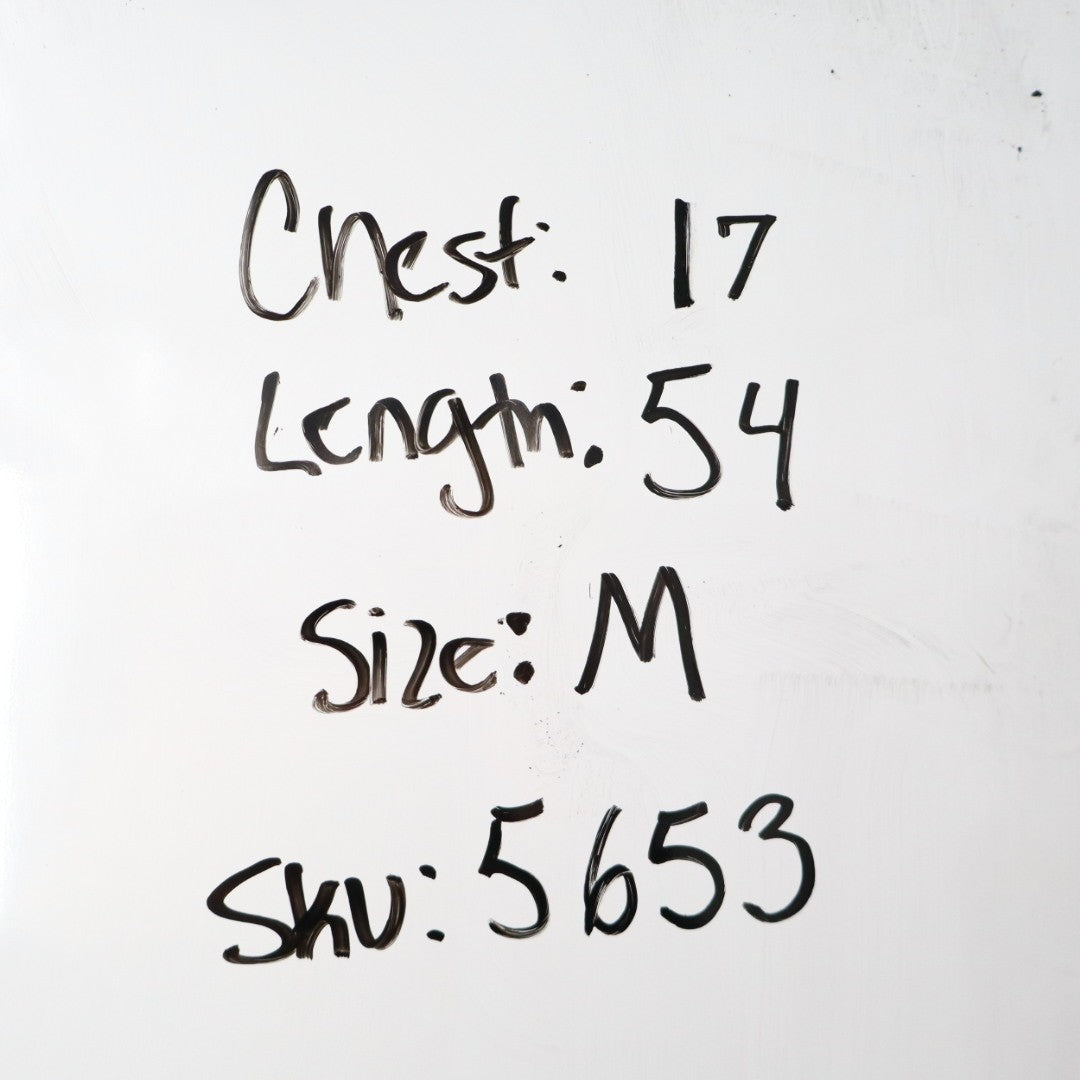 Chest: 17
Length: 54
Size: M
SKU: 5653